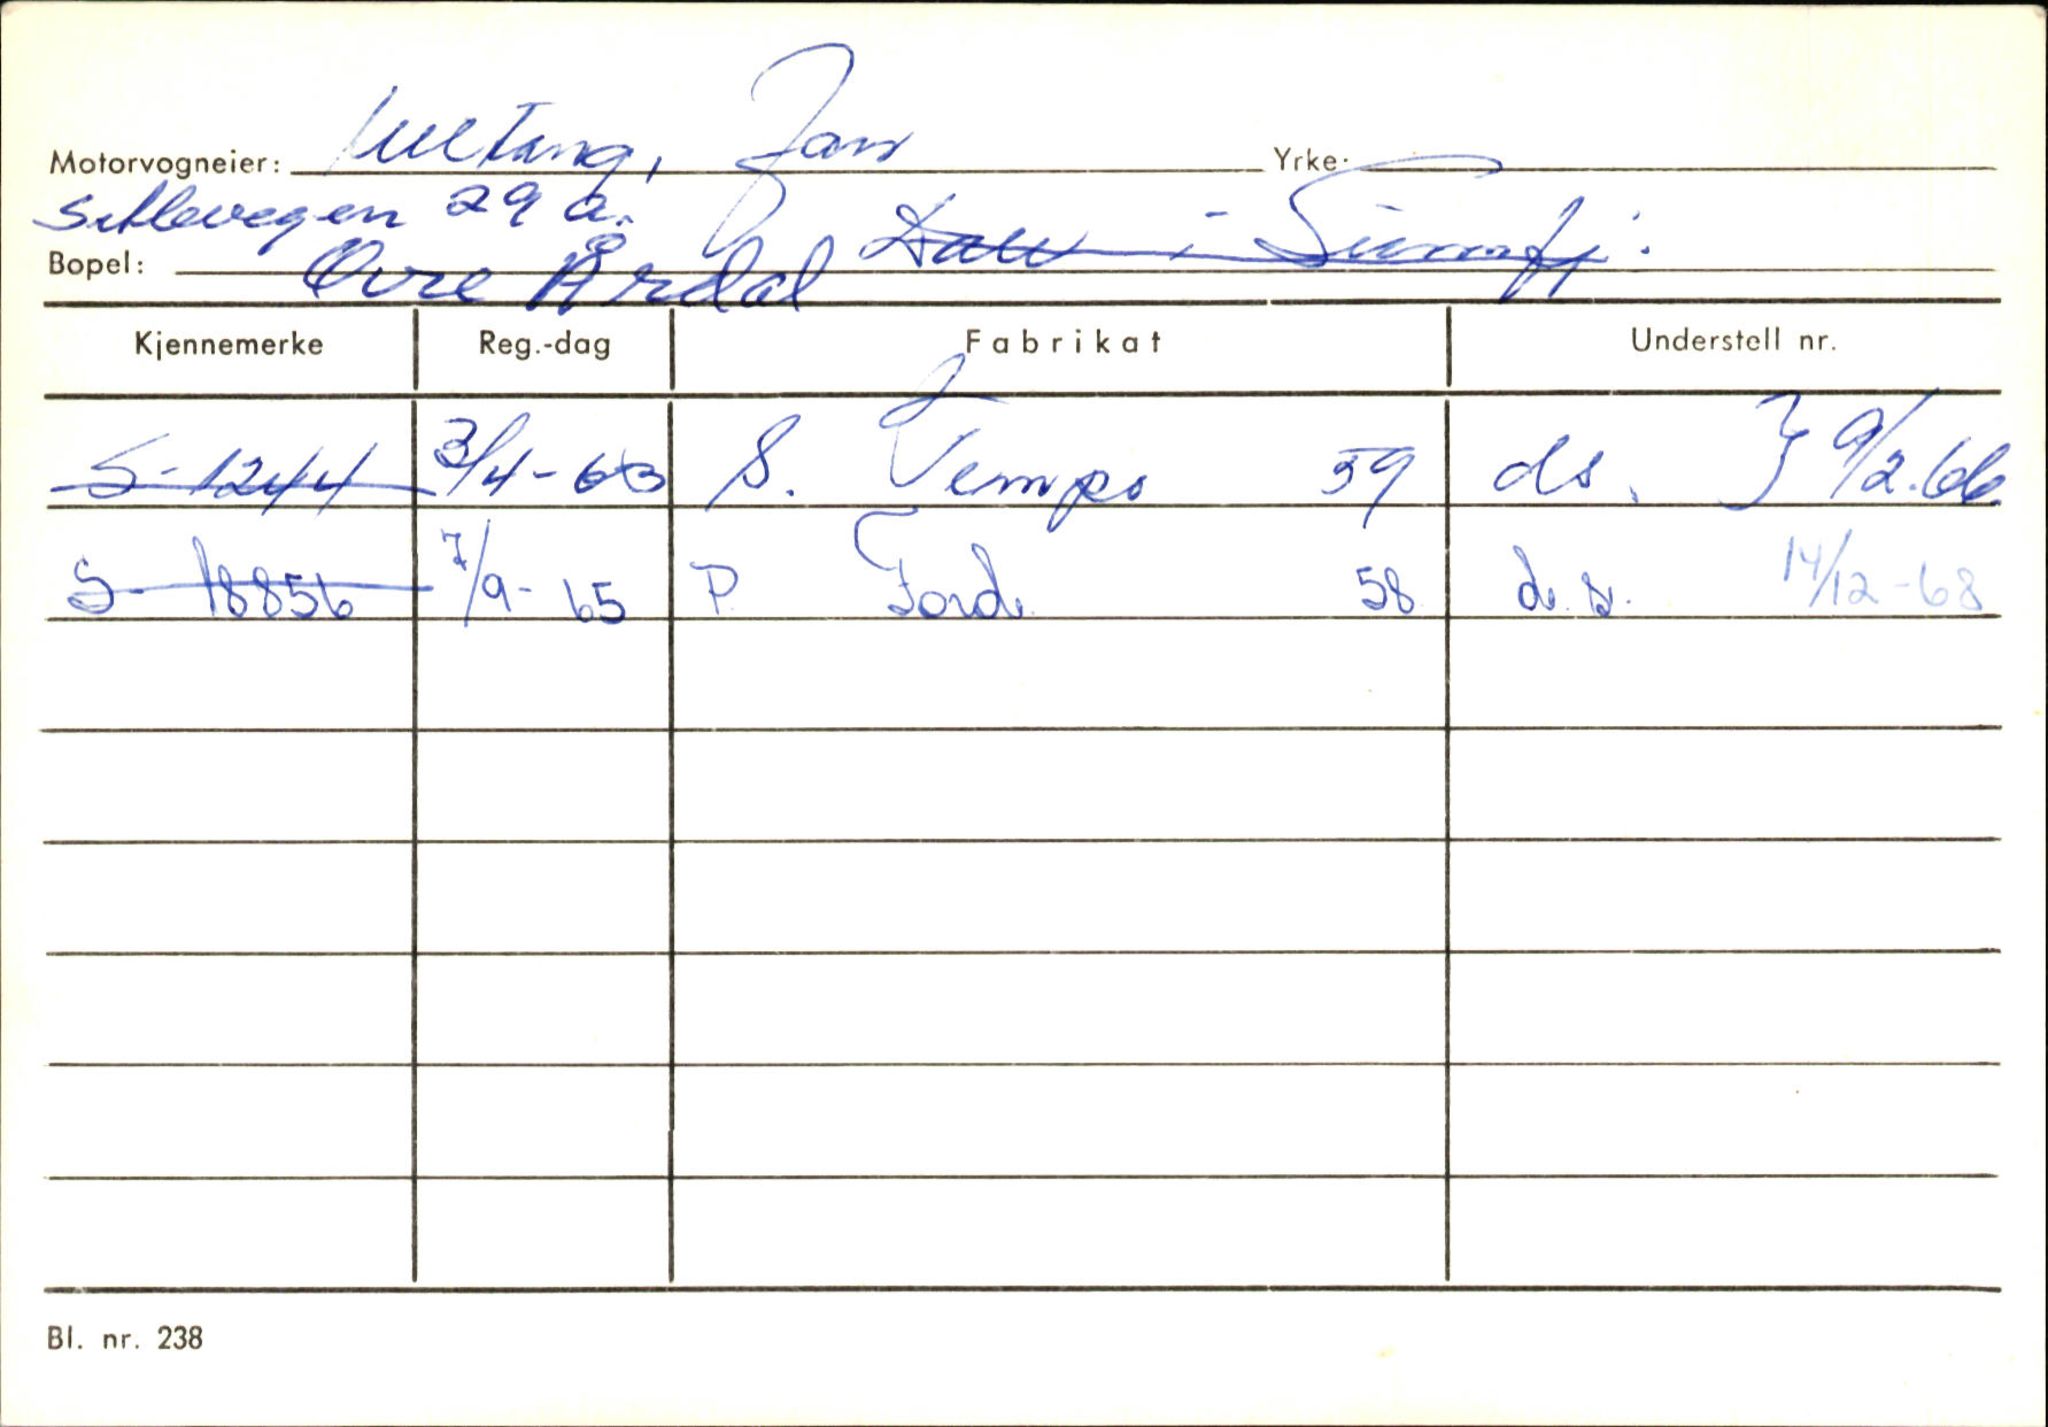 Motorvogneier: Ulltang, Jan Yrke:
Sitlevegen 29 a.
Bopel: Øvre Årdal Dale i Sunnfj.
Kjennemerke Reg.-dag Fabrikat Understell nr.
S-1244 3/4-63 S. Tempo 59 ds. } 9/2.66
S-18856 7/9-65 P. Ford 58 d.s. 14/12-68
Bl. nr. 238